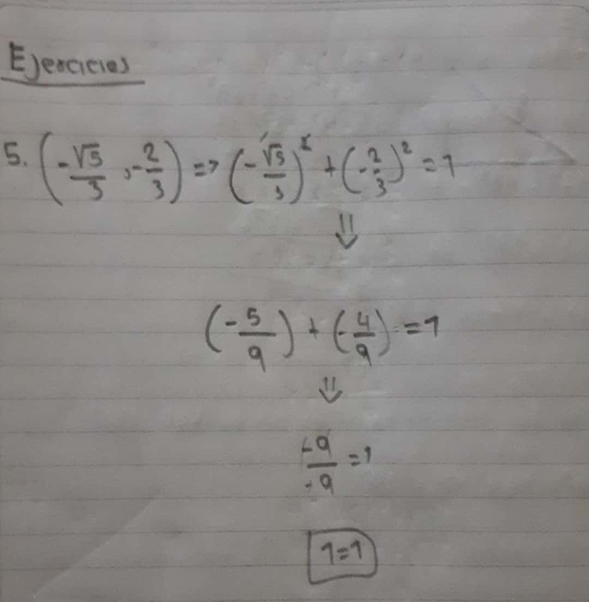 Ejercicios
5. (-√5/3, -2/3) => (-√5/3)² + (-2/3)² = 1
⇓
(-5/9) + (-4/9) = 1
⇓
-9/-9 = 1
1=1